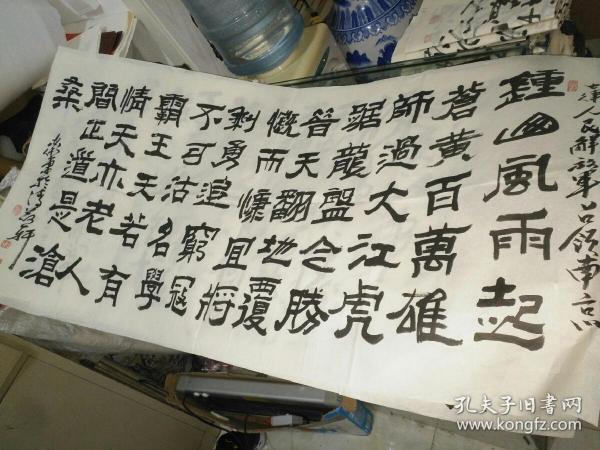 七律人民解放軍占領南京
鍾山風雨起
蒼黄百萬雄
師過大江虎
踞龍盤今勝
昔天翻地覆
慨而慷宜將
剩勇追窮寇
不可沽名學
霸王天若有
情天亦老人
間正道是滄
桑
孔夫子旧书网
www.kongfz.com